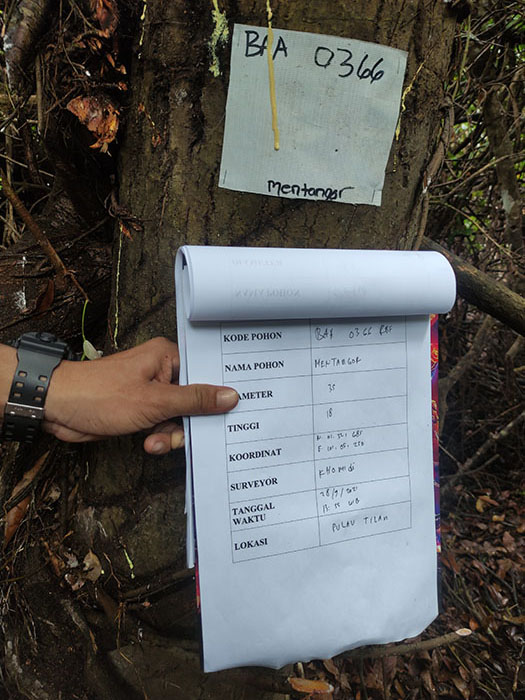 BAA 0366
mentangor
KODE POHON BAA 0366 REF
NAMA POHON MENTANGOR
AMETER 35
TINGGI 18
KOORDINAT
SURVEYOR KHOMIDI
TANGGAL
WAKTU
LOKASI PULAU TILAN